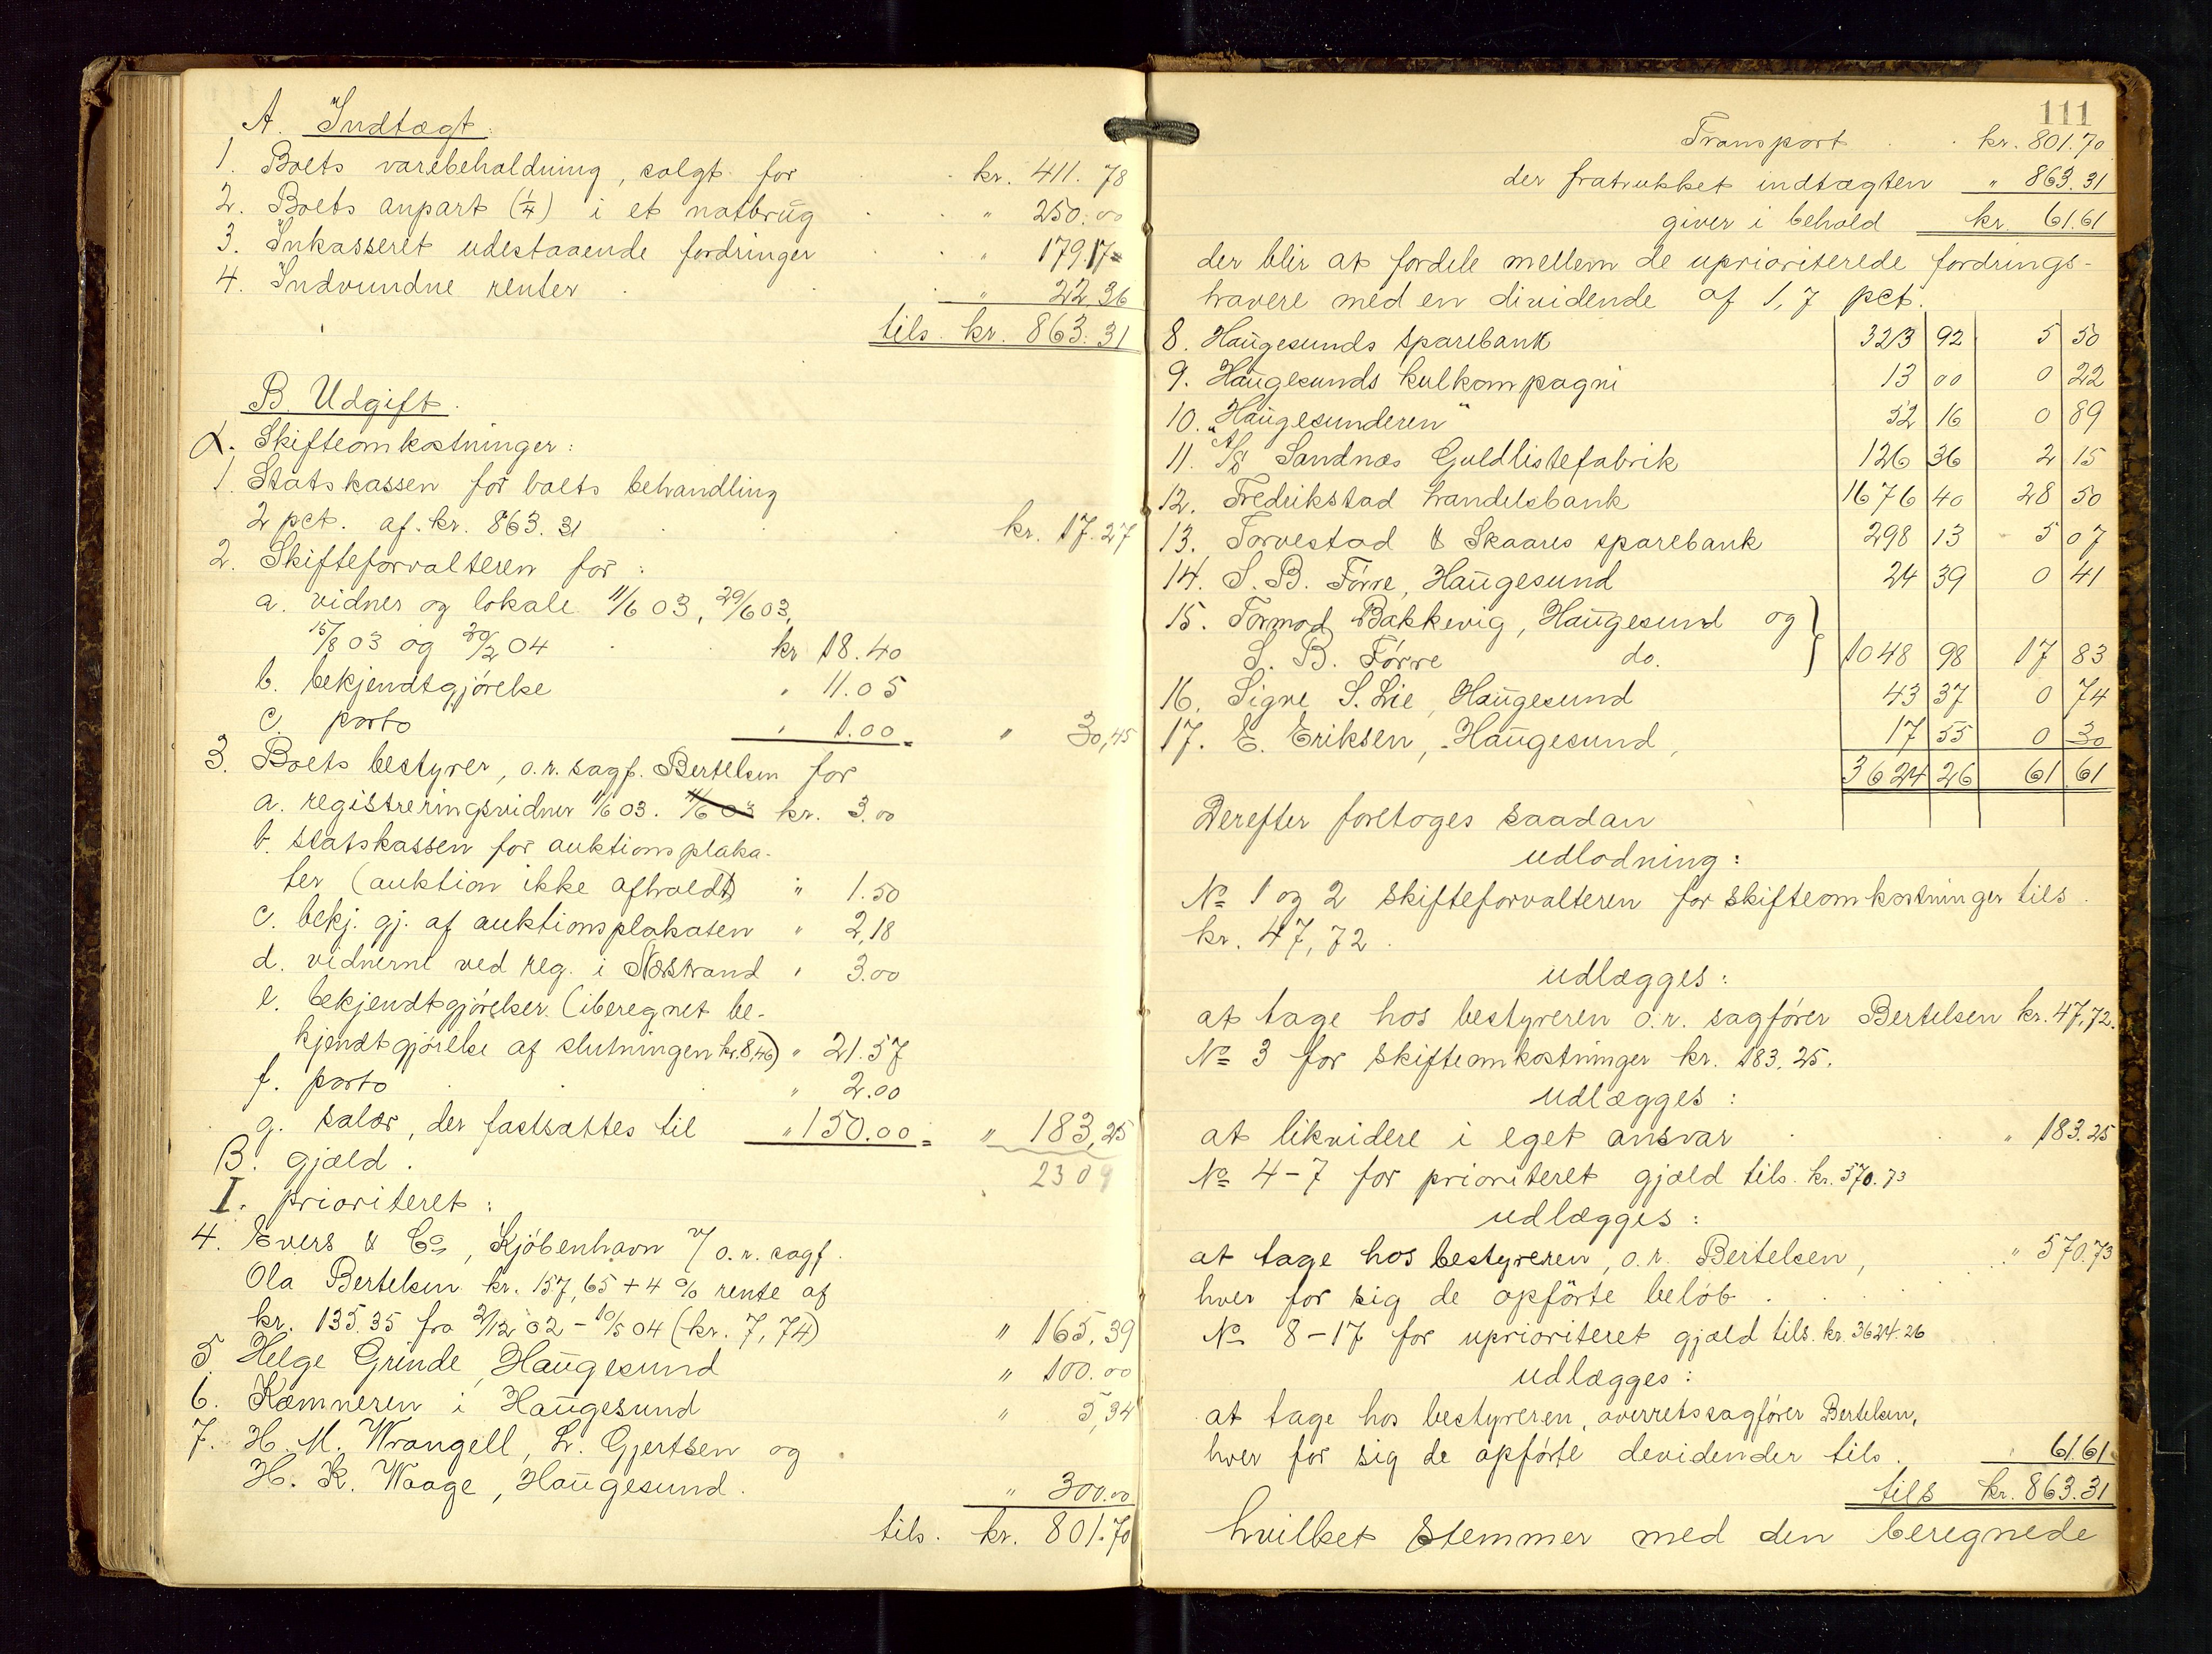 A. Indtægt:
1. Boets varebeholdning, solgt for kr. 411.78
2. Boets anpart (1/4) i et notbrug " 250.00
3. Inkasseret udestaaende fordringer " 179.17
4. Indvundne renter " 22.36
tils. kr. 863.31
B. Udgift.
α. Skifteomkostninger:
1. Statskassen for boets behandling
2 pct. af kr. 863.31 kr. 17.27
2. Skifteforvalteren for:
a. vidner og lokale 11/6 03, 29/6 03,
15/8 03 og 20/2 04 kr 18.40
b. bekjendtgjørelse " 11.05
c. porto " 1.00 " 30,45
3. Boets bestyrer, o.r. sagf. Bertelsen for
a. registreringsvidner 11/6 03. 11/6 03 kr. 3.00
b. statskassen for auktionsplaka-
ter (auktion ikke afholdt) " 1.50
c. bekj. gj. af auktionsplakaten " 2,18
d. vidnerne ved reg. i Nøstrand " 3.00
e. bekjendtgjørelser (iberegnet be-
kjendtgjørelse af slutningen kr. 8,46) " 21.57
f. porto " 2.00
g. salær, der fastsattes til " 150.00 " 183,25
2309
β. gjæld.
I. prioriteret:
4. Evers & Co, Kjøbenhavn v/ o.r. sagf.
Ola Bertelsen kr. 157,65 + 4 % rente af
kr. 135.35 fra 2/12 02 - 10/5 04 (kr. 7,74) " 165,39
5. Helge Grinde, Haugesund " 100.00
6. Kæmneren i Haugesund " 5,34
7. H. M. Wrangell, L. Gjertsen og
H. K. Waage, Haugesund. " 300.00
tils. kr. 801.70
111
Transport kr. 801.70
der fratrukket indtægten " 863.31
giver i behold kr. 61.61
der blir at fordele mellem de uprioriterede fordrings-
havere med en dividende af 1,7 pct.
8. Haugesunds sparebank 323 92 5 50
9. Haugesunds kulkompagni 13 00 0 22
10. "Haugesunderen" 52 16 0 89
11. A/S Sandnæs Guldlistefabrik 126 36 2 15
12. Fredrikstad handelsbank 1676 40 28 50
13. Torvestad & Skaares sparebank 298 13 5 07
14. S. B. Førre, Haugesund 24 39 0 41
15. Tormod Bakkevig, Haugesund og
S. B. Førre do. 1048 98 17 83
16. Signe S. Lie, Haugesund 43 37 0 74
17. E. Eriksen, Haugesund, 17 55 0 30
3624 26 61 61
Derefter foretoges saadan
udlodning:
No 1 og 2 skifteforvalteren for skifteomkostninger tils.
kr. 47,72.
udlægges:
at tage hos bestyreren o.r. sagfører Bertelsen kr. 47,72.
No 3 for skifteomkostninger kr. 183.25.
udlægges:
at likvidere i eget ansvar " 183.25
No 4-7 for prioriteret gjæld tils. kr. 570.73
udlægges:
at tage hos bestyreren, o.r. Bertelsen, " 570.73
hver for sig de opførte beløb.
No 8-17 for uprioriteret gjæld tils. kr. 3624.26
udlægges:
at tage hos bestyreren, overretssagfører Bertelsen,
hver for sig de opførte devidender tils. 61.61
tils kr. 863.31
hvilket stemmer med den beregnede